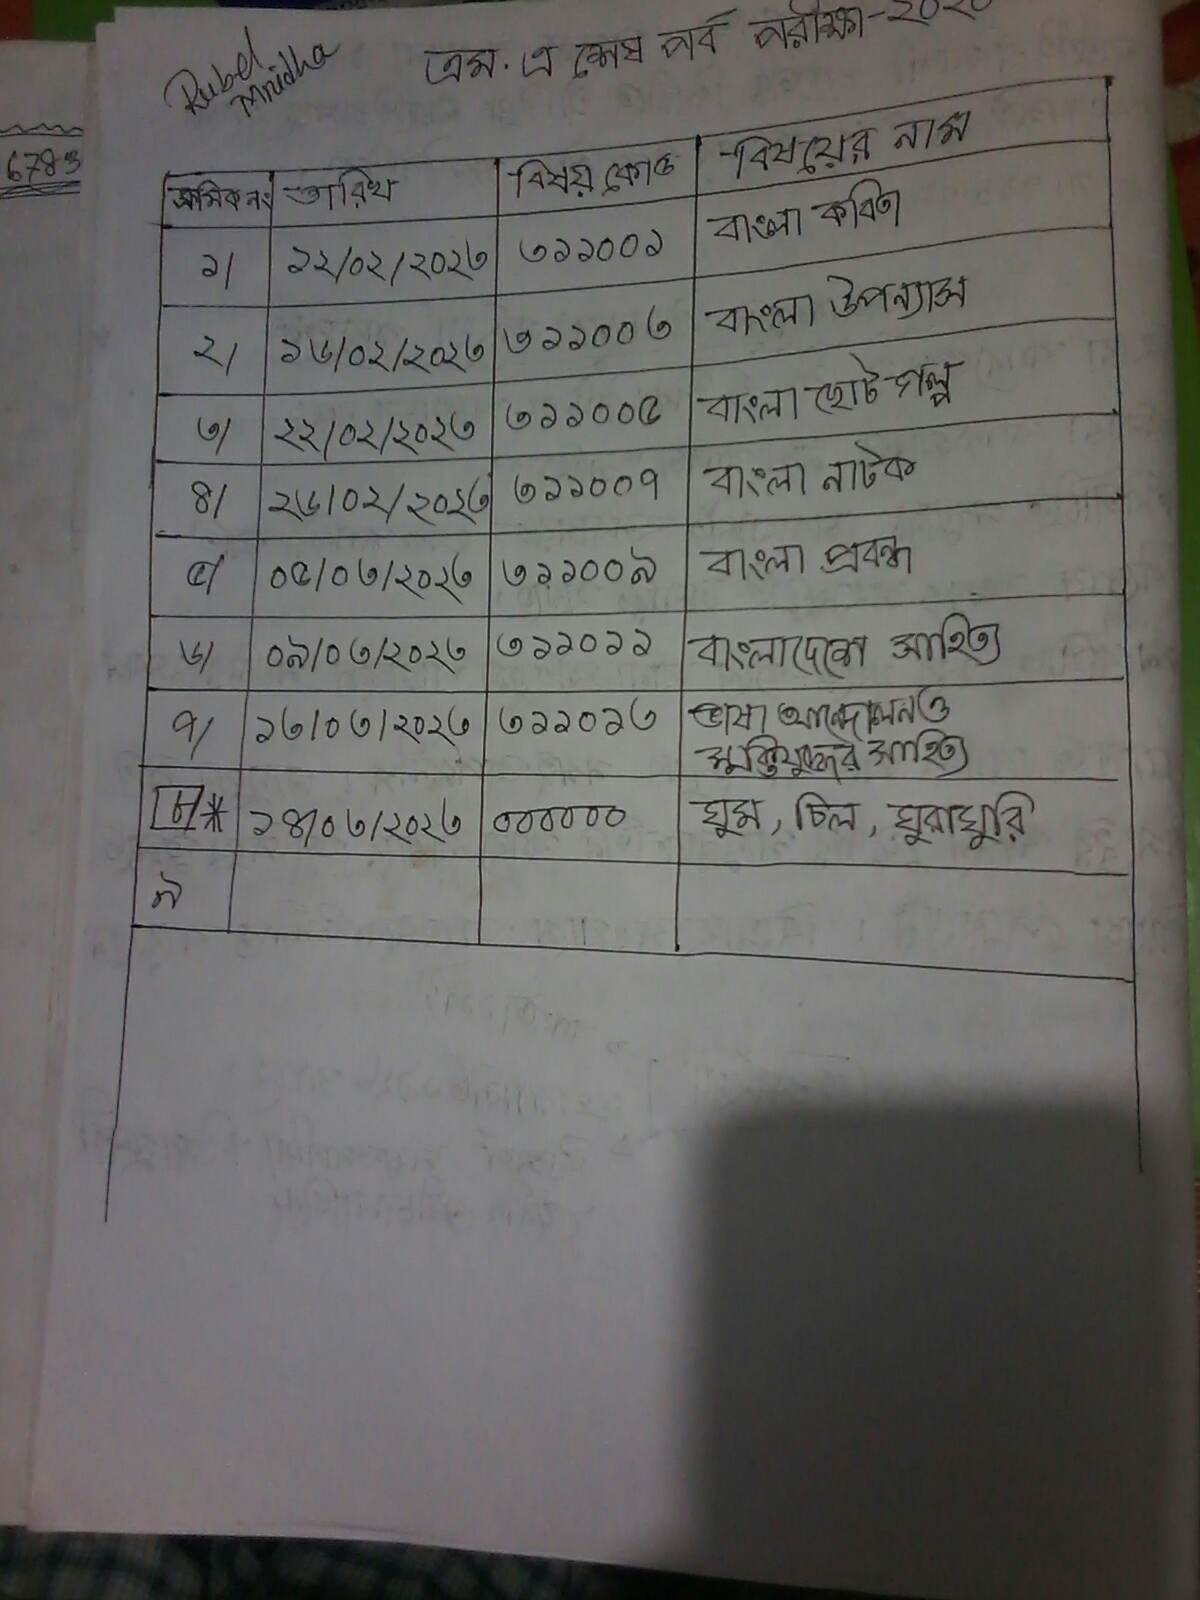 Rubel
Mridha
এম. এ শেষ পর্ব পরীক্ষা-২০২০
6783
ক্রমিক নং তারিখ বিষয় কোড বিষয়ের নাম
১/ ১২/০২/২০২৩ ৩১১০০১ বাংলা কবিতা
২/ ১৬/০২/২০২৩ ৩১১০০৩ বাংলা উপন্যাস
৩/ ২২/০২/২০২৩ ৩১১০০৫ বাংলা ছোট গল্প
৪/ ২৬/০২/২০২৩ ৩১১০০৭ বাংলা নাটক
৫/ ০৫/০৩/২০২৩ ৩১১০০৯ বাংলা প্রবন্ধ
৬/ ০৯/০৩/২০২৩ ৩১১০১১ বাংলাদেশে সাহিত্য
৭/ ১৩/০৩/২০২৩ ৩১১০১৩ ভাষা আন্দোলন ও
মুক্তিযুদ্ধের সাহিত্য
৮/* ১৪/০৩/২০২৩ ০০০০০০ ঘুম, চিল, ঘুরাঘুরি
৯